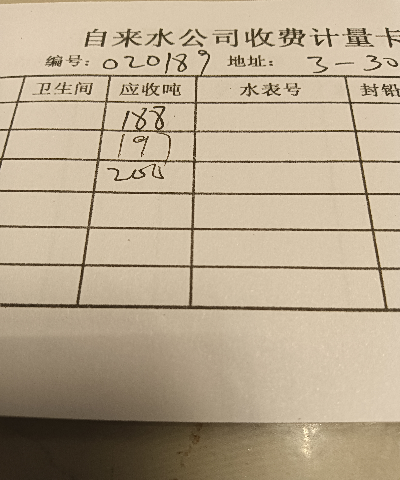 自来水公司收费计量卡
编号: 020189 地址: 3-30
卫生间 应收吨 水表号 封铅
188
197
200